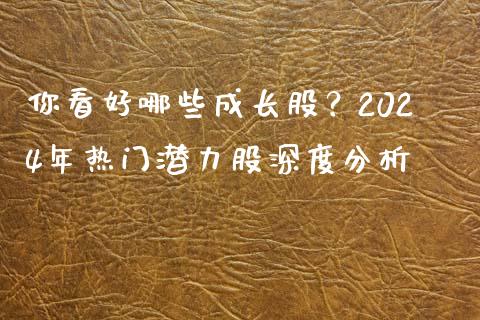 你看好哪些成长股？202
4年热门潜力股深度分析